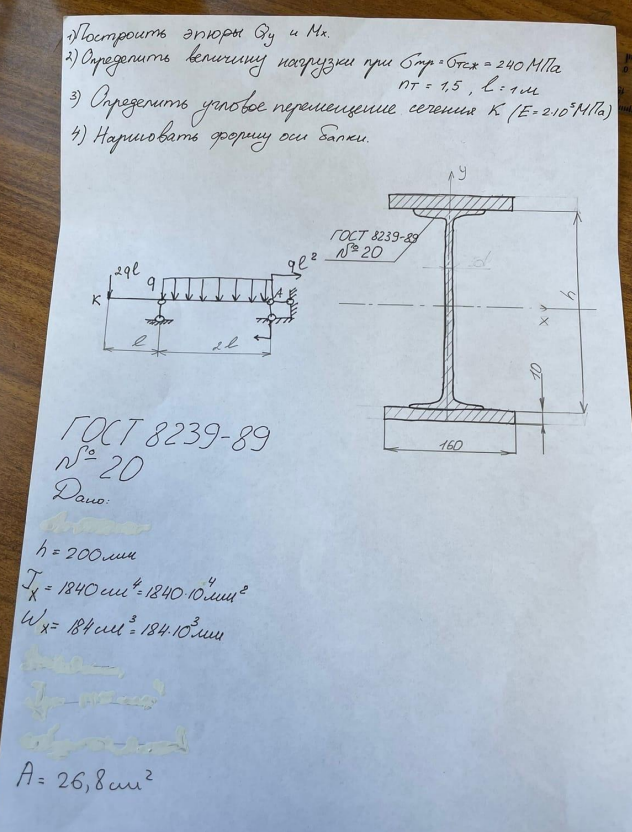 1) Построить эпюры Qy и Mx.
2) Определить величину нагрузки при σтр = σтсж = 240 МПа
nт = 1,5, l = 1м
3) Определить угловое перемещение сечения K (E = 2·10⁵ МПа)
4) Нарисовать форму оси балки.
y
ГОСТ 8239-89
№ 20
2ql
q
ql²
K
A
l
2l
x
h
10
160
ГОСТ 8239-89
№ 20
Дано:
h = 200 мм
Jx = 1840 см⁴ = 1840·10⁴ мм²
Wx = 184 см³ = 184·10³ мм
A = 26,8 см²